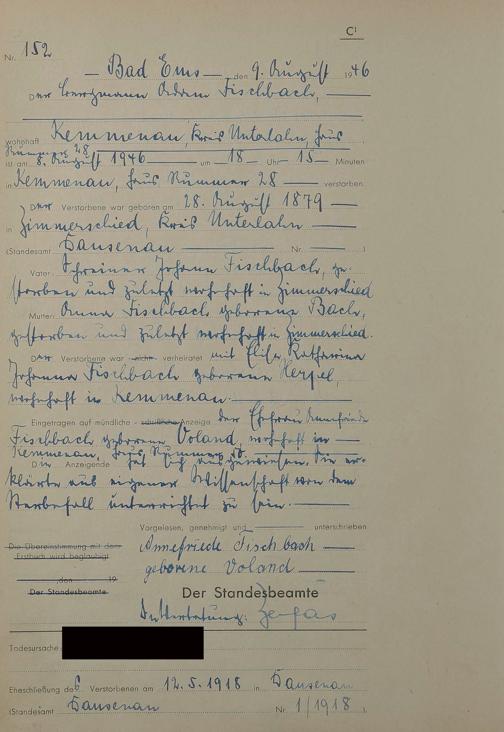 C1
Nr. 152
— Bad Ems —, den 9. August 1946
Der Bergmann Adam Fischbach, —
wohnhaft Kemmenau, Kreis Unterlahn, Haus
Nummer 28 —
ist am 8. August 1946 — um — 18 — Uhr — 15 — Minuten
in Kemmenau, Haus Nummer 28 — verstorben.
Der Verstorbene war geboren am 28. August 1879 —
in Zimmerschied, Kreis Unterlahn —
(Standesamt Dausenau — Nr. — )
Vater: Schreiner Johann Fischbach, ge-
storben und zuletzt wohnhaft in Zimmerschied
Mutter: Anna Fischbach geborene Bach,
gestorben und zuletzt wohnhaft in Zimmerschied.
Der Verstorbene war — nicht — verheiratet mit Elise Katharina
Johanna Fischbach geborene
wohnhaft in Kemmenau. —
Eingetragen auf mündliche - schriftliche - Anzeige der Ehefrau Annefriede
Fischbach geborene Voland, wohnhaft in —
Kemmenau, Haus Nummer
Die Anzeigende hat sich ausgewiesen. Sie er-
klärte aus eigener Wissenschaft von dem
Sterbefall unterrichtet zu sein. —
Vorgelesen, genehmigt und — unterschrieben
Die Übereinstimmung mit dem
Erstbuch wird beglaubigt
Annefriede Fischbach —
geborene Voland —
, den 19
Der Standesbeamte
Der Standesbeamte
In Vertretung:
Todesursache:
Eheschließung des Verstorbenen am 12.5.1918 in Dausenau
(Standesamt Dausenau Nr. 1/1918 )